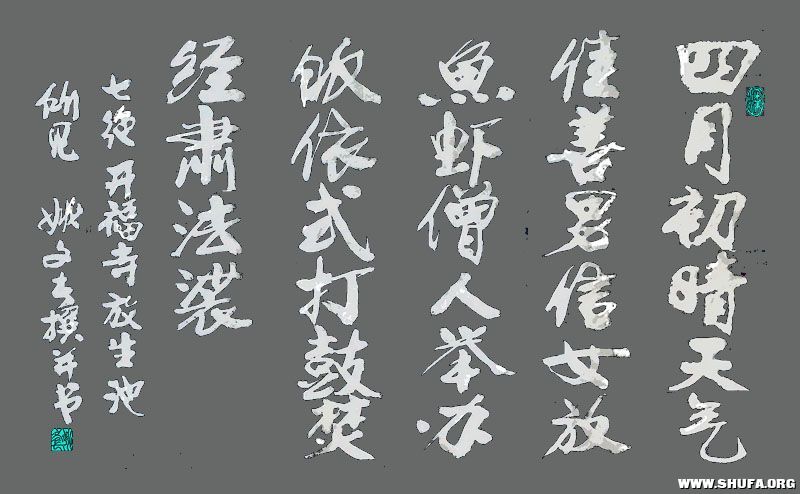 四月初晴天气
佳善男信女放
鱼虾僧人举办
皈依式打鼓焚
经肃法裟
七绝 开福寺放生池
所见 姚文撰并书
WWW.SHUFA.ORG